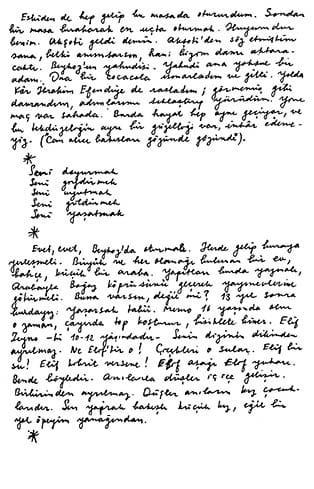 Eskiden de hep gelip bu masada otururdum. Sonradan
bir masa bırakarak en uçta oturmak. Huyum dur
benim. Akşoti geldi demin. Akşoti'den söz etmiştim
sana, belki anımsarsın, hani
. Beykoz'un yahudisi. Yahudi ama yoksul bir
adam. Ona bir cocacola ısmarladım ve gitti. Yolda
Kör İbrahim Efendiye de rastladım; görmemiş gibi
davrandım, adımlarımı yürüdüm. Yine
maç var sahada. Burda hayat hep aynı geçiyor, ve
bu tekdüzeliğin ayrı bir güzelliği var, inkâr edeme-
yiz. (Can alıcı bakışları gözümde gözümde).
*
Seni duyurmak
Seni güldürmek
Seni uyutmak
Seni
Seni yaşatmak
*
Evet, evet, Beykoz'da oturmalı. Ilerde gelip buraya
yerleşmeli. Büyük ve her olanağı bulunan bir ev,
bahçe, küçük bir araba. Yapıtları burda yazmalı,
Arabayla Boğaz köprüsünü geçerek yayınevlerine
götürmeli. Buna varsın, değil mi? 13 yıl sonra
burdayız. Yazarsak tabii. Memo 16 yaşında olur
o zaman, çayırda top koşturur, bisiklete biner. Elif
Zeyno —ki 10-12 yaşındadır— Senin dizinin dibinden
ayrılmaz. Ne Elif'tir o! Çiçekleri o sular. Elif bir
su! Elif kibrit versene! Elif aşağı Elif yukarı.
Bende böyledir. Anılarla düşler iç içe gelişir.
Birbirinden ayrılmaz. Düşler anıların kız çocuk-
larıdır. Sen yaprak bakışlı küçük kız, eğil bir
yol öpeyim yanağından.
*